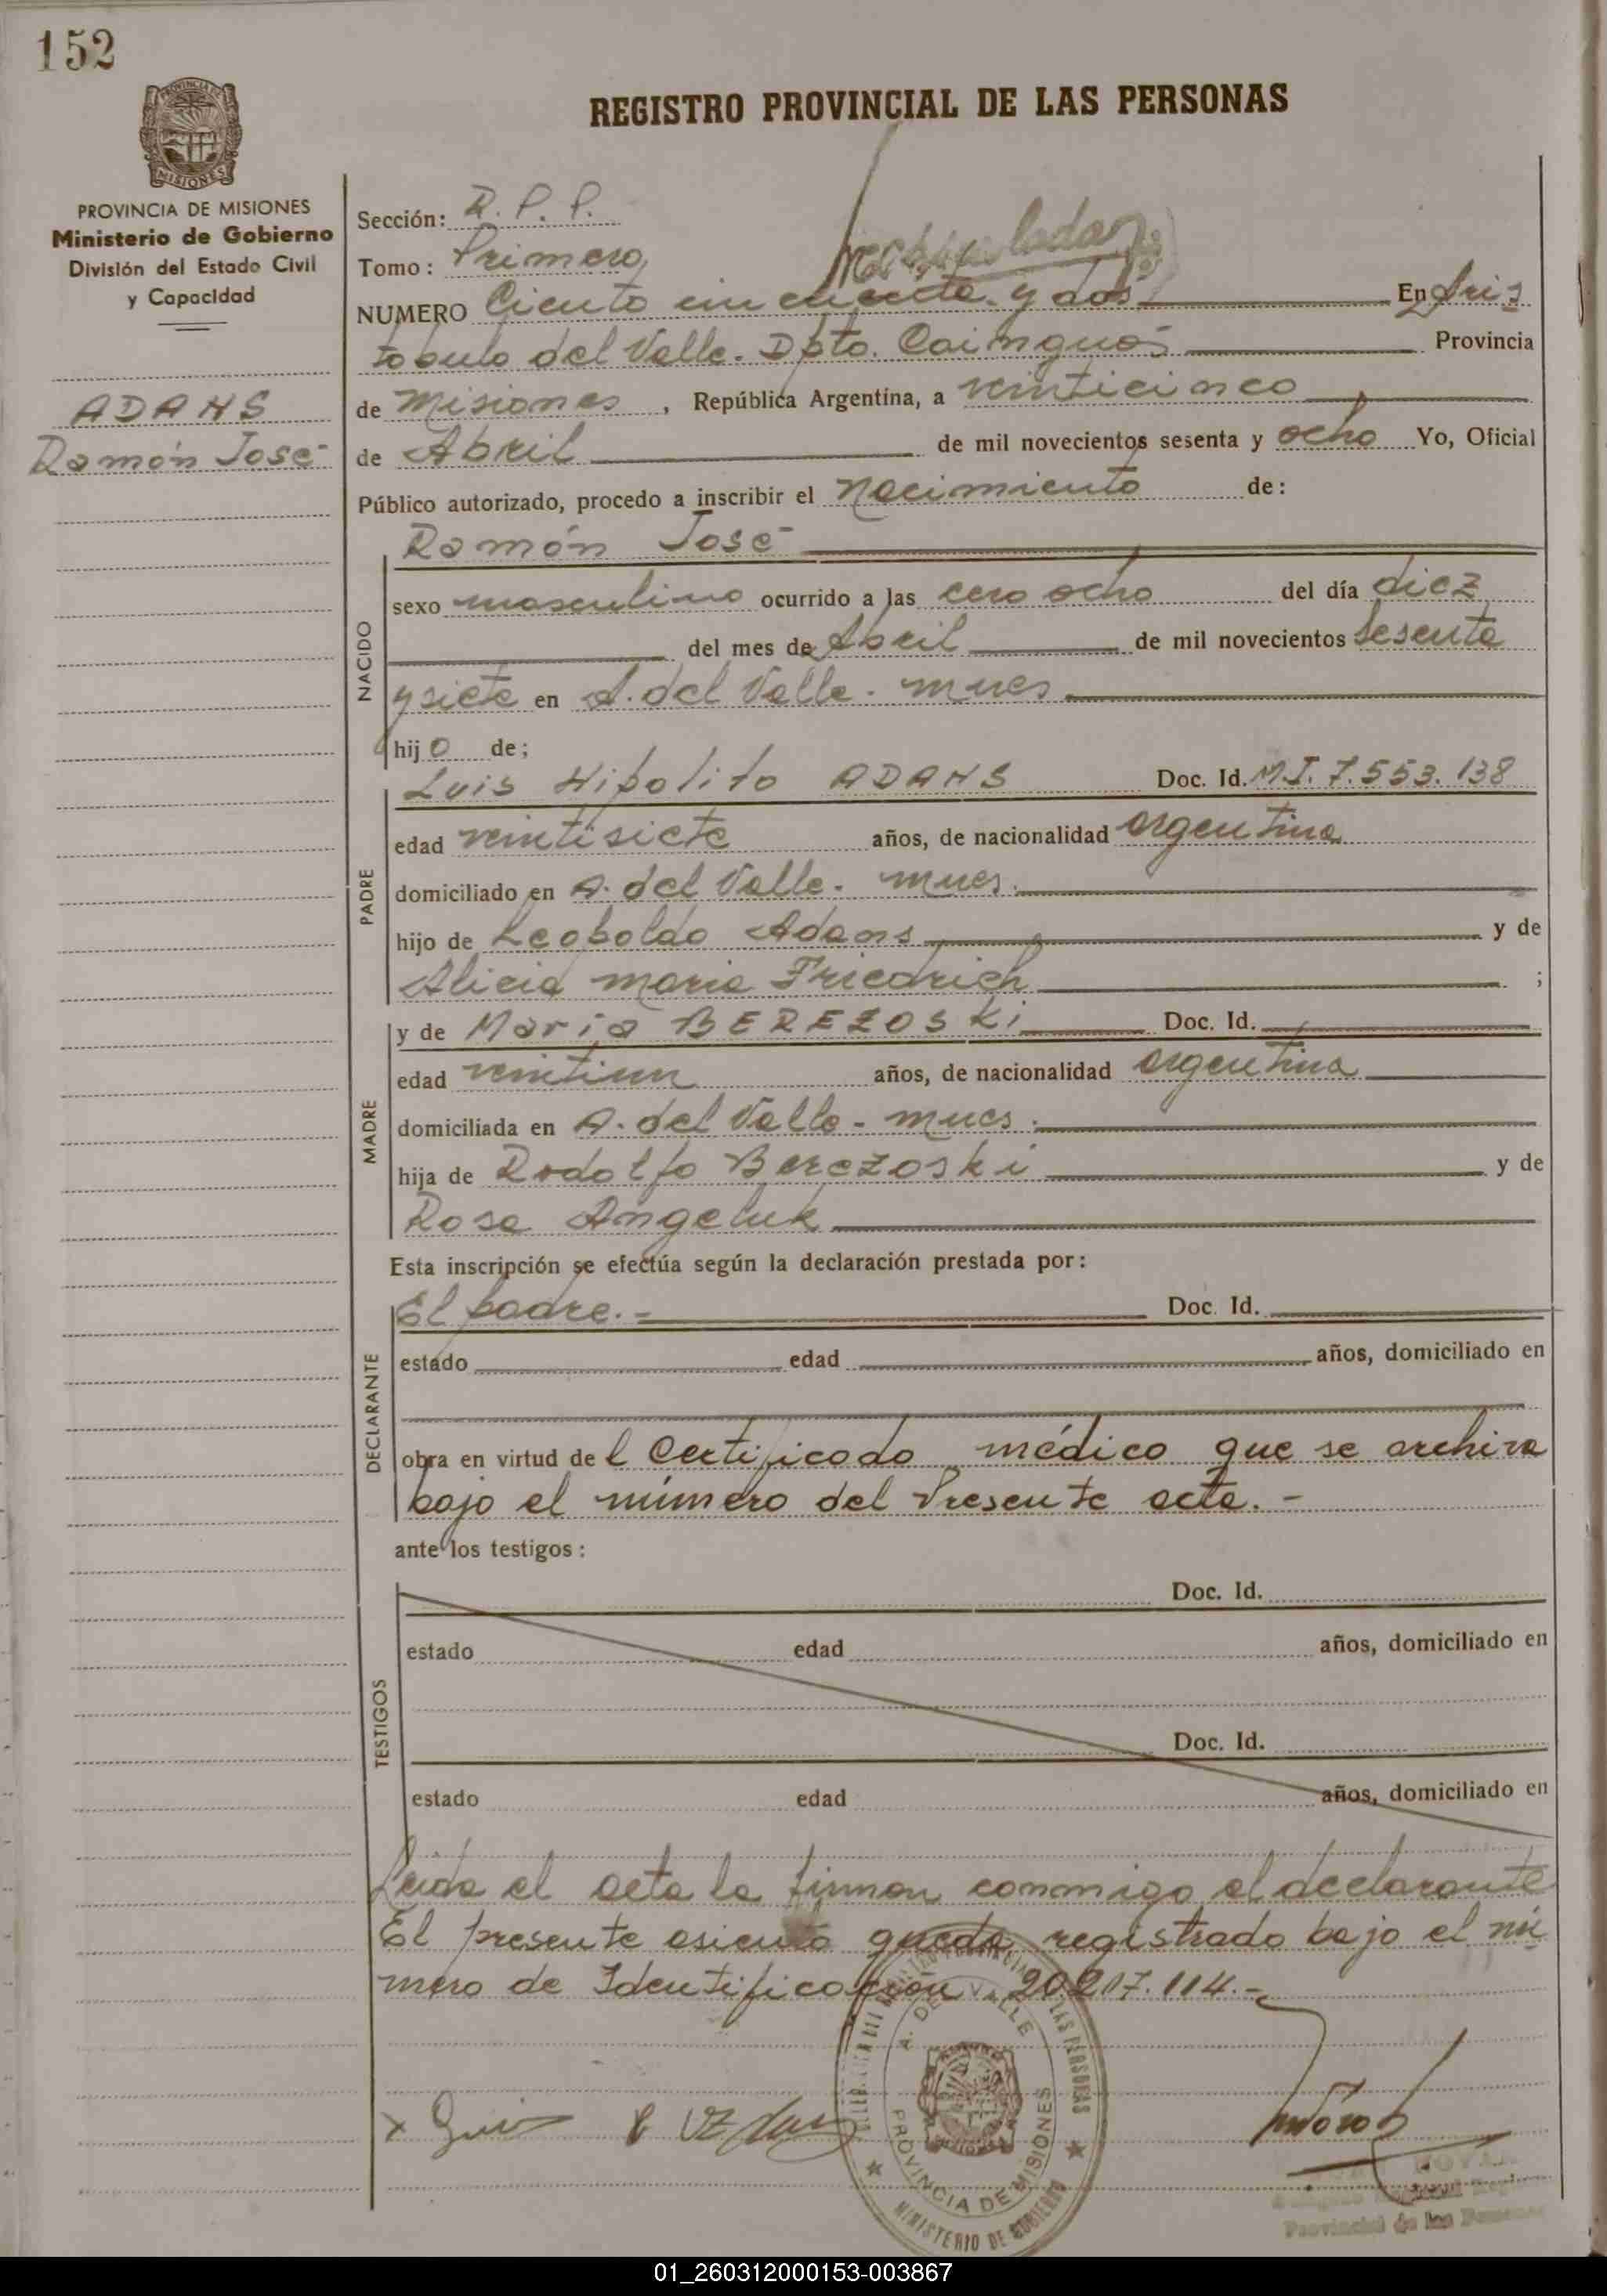 152
REGISTRO PROVINCIAL DE LAS PERSONAS
PROVINCIA DE MISIONES
Ministerio de Gobierno
División del Estado Civil
y Capacidad
ADAMS
Ramón José
Sección: R. P. P.
Tomo: Primero
NUMERO Ciento cincuenta y dos En Aris
tobulo del Valle. Dpto. Cainguas Provincia
de Misiones, República Argentina, a veinticinco
de Abril de mil novecientos sesenta y ocho Yo, Oficial
Público autorizado, procedo a inscribir el Nacimiento de:
Ramón José
NACIDO
sexo masculino ocurrido a las cero ocho del día diez
del mes de Abril de mil novecientos sesenta
y siete en A. del Valle. Mnes
hijo de;
Luis Hipolito ADAMS Doc. Id. M.I. 7.553.138
PADRE
edad veintisiete años, de nacionalidad argentina
domiciliado en A. del Valle. Mnes.
hijo de Leopoldo Adams y de
Alicia Maria Friedrich ;
y de Maria BEREZOSKi Doc. Id.
MADRE
edad veintiun años, de nacionalidad argentina
domiciliada en A. del Valle - Mnes.
hija de Rodolfo Berezoski y de
Rosa Angeluk
Esta inscripción se efectúa según la declaración prestada por:
El padre.- Doc. Id.
DECLARANTE
estado edad años, domiciliado en
obra en virtud del Certificado médico que se archiva
bajo el número del Presente acta. -
ante los testigos:
Doc. Id.
TESTIGOS
estado edad años, domiciliado en
Doc. Id.
estado edad años, domiciliado en
Leida el acta la firman conmigo el declarante
El presente asiento queda registrado bajo el nú
mero de Identificación 20.217.114.-
A. DEL VALLE
LAS PERSONAS
PROVINCIA DE MISIONES
MINISTERIO DE GOBIERNO
Provincial de las Personas
01_260312000153-003867